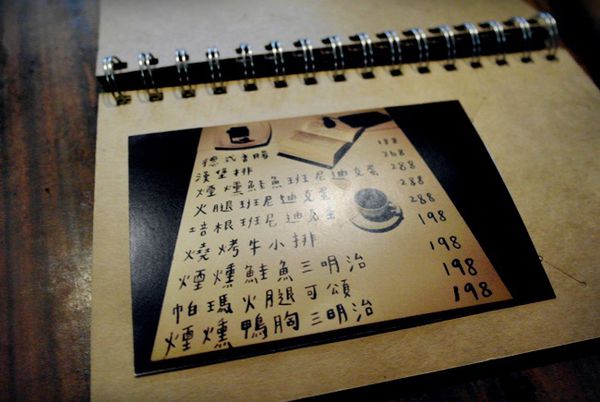 德式香腸 188
漢堡排 268
煙燻鮭魚班尼迪克蛋 288
火腿班尼迪克蛋 288
培根班尼迪克蛋 288
燒烤牛小排 198
煙燻鮭魚三明治 198
帕瑪火腿可頌 198
煙燻鴨胸三明治 198